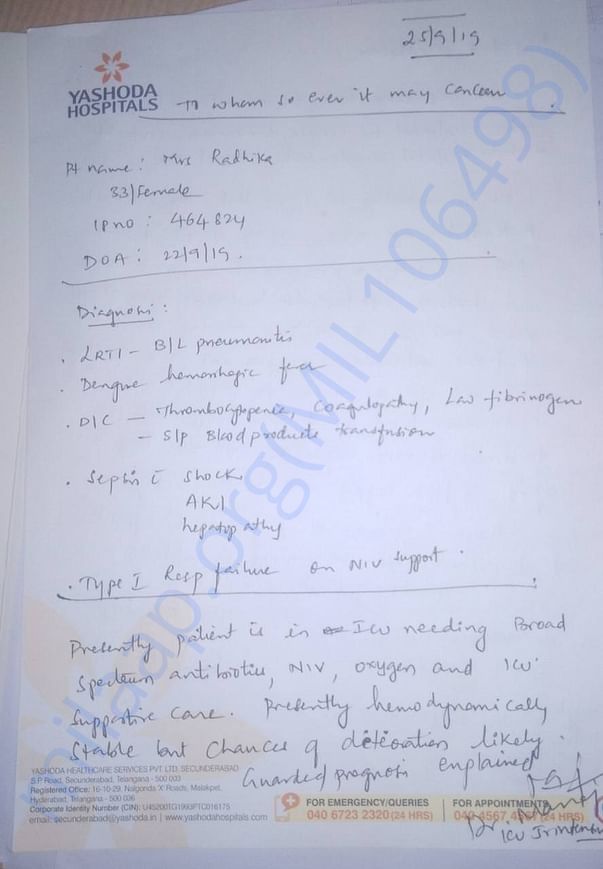 25/9/19
YASHODA
HOSPITALS
To whom so ever it may concern
Pt name: Mrs Radhika
33/Female
IP no: 464824
DOA: 22/9/19.
Diagnosis:
. LRTI - B/L pneumonitis
. Dengue hemorrhagic fever
. DIC - Thrombocytopenia, Coagulopathy, Low fibrinogen
- S/p Blood products transfusion
. Sepsis c̄ shock
AKI
hepatopathy
. Type I Resp failure on NIV support.
Presently patient is in ICU needing Broad
spectrum antibiotics, NIV, oxygen and ICU
supportive care. Presently hemodynamically
stable but chances of deterioration likely.
Guarded prognosis explained
YASHODA HEALTHCARE SERVICES PVT. LTD. SECUNDERABAD
S.P. Road, Secunderabad, Telangana - 500 003
Registered Office: 16-10-29, Nalgonda 'X' Roads, Malakpet,
Hyderabad, Telangana - 500 036
Corporate Identity Number (CIN): U45200TG1993PTC016175
email: secunderabad@yashoda.in | www.yashodahospitals.com
FOR EMERGENCY/QUERIES
040 6723 2320 (24 HRS)
FOR APPOINTMENTS
040 4567 (24 HRS)
Dr.
ICU
milaap.org(MIL106498)